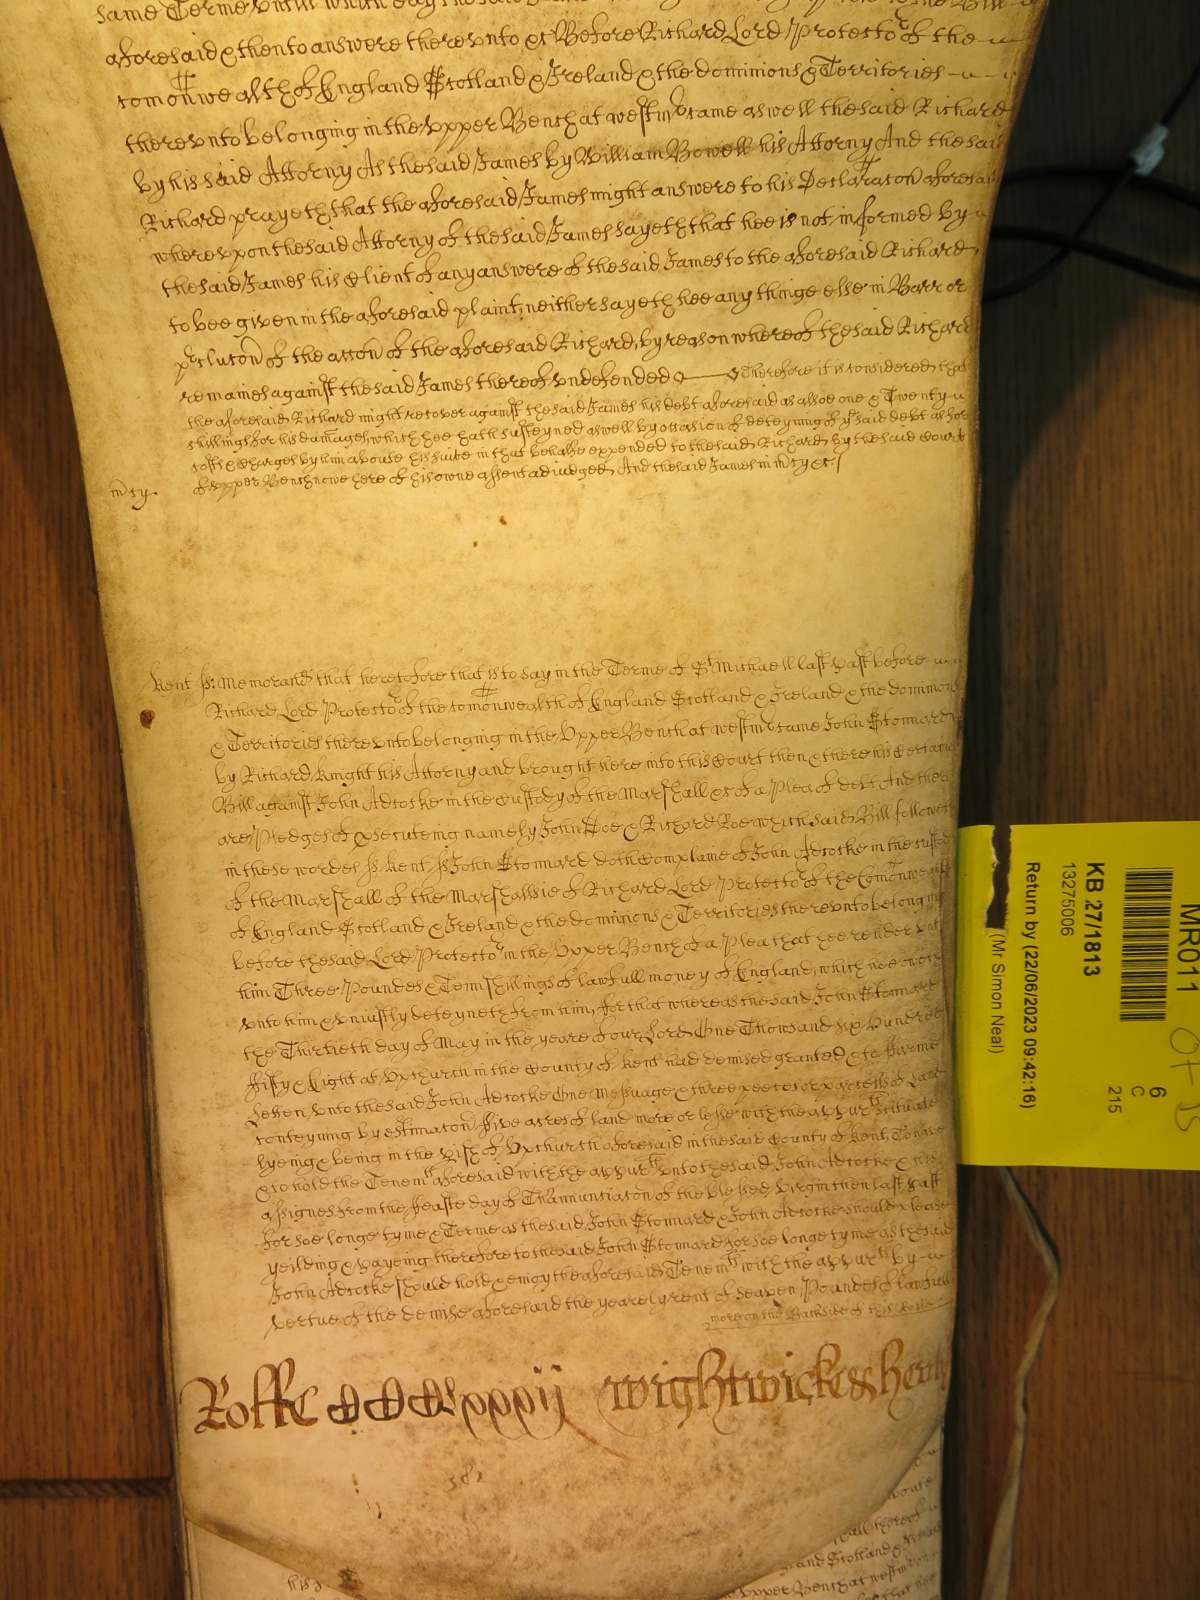 same Terme untill which day the said
aforesaid & then to answere thereunto &c Before Richard Lord Protector of the
Comonwealth of England Scotland & Ireland & the dominions & Territories
thereunto belonging in the Upper Bench at Westmr came aswell the said Richard
by his said Attorny As the said James by William Bowell his Attorny And the said
Richard prayeth that the aforesaid James might answere to his Declaracon aforesaid
whereupon the said Attorny of the said James sayeth that hee is not informed by
the said James his Client of any answere of the said James to the aforesaid Richard
to bee given in the aforesaid plaint, neither sayeth hee any thinge else in Barr or
pcluton of the accon of the aforesaid Richard, by reason whereof the said Richard
remaines against the said James thereof undefended Therefore it is considered that
the aforesaid Richard might recover against the said James his debt aforesaid as alsoe one & Twenty
shillings for his damages, which hee hath susteyned aswell by occasion of deteyning of ye said debt as for
costs & charges by him aboute his suite in that behalfe expended to the said Richard by the said Court
of Upper Bench nowe here of his owne assent adiudged And the said James in mcy &c
mcy
Kent ss: Memorand that heretofore that is to say in the Terme of St Michaell last past before
Richard Lord Protector of the Comonwealth of England Scotland & Ireland & the dominions
& Territories thereunto belonging in the Upper Bench at Westmr came John Stonnard
by Richard Knight his Attorny and brought here into this Court then & there his Certaine
Bill against John Adcocke in the Custody of the Marshall &c of a Plea of debt And there
are Pledges of prosecuteing namely John Doe & Richard Roe which said Bill followeth
in these wordes ss Kent ss John Stonnard doth Complaine of John Adcocke in the custody
of the Marshall of the Marshallsie of Richard Lord Protector of the Comonwealth
of England Scotland & Ireland & the dominions & Territories thereunto belonging
before the said Lord Protector in the Upper Bench of a Plea that hee render unto
him Three Poundes & Tenn shillings of lawfull money of England, which hee oweth
unto him & uniustly deteyneth from him, for that whereas the said John Stonnard
the Thirtieth day of May in the yeare of our Lord One Thousand six Hundred
ffifty & Eight at Upchurch in the County of Kent had demised granted & to ffarme
Letten unto the said John Adcocke One Messuage & three peeces or parcells of Land
conteyning by estimacon ffive acres of land more or lesse with the appurtes situate
lyeing & being in the pish of Upchurch aforesaid in the said County of Kent, To have
& to hold the Tenemts aforesaid with the appurtes unto the said John Adcocke & his
assignes from the ffeaste day of Thannuntiacon of the blessed virgin then last past
for soe longe tyme & Terme as the said John Stonnard & John Adcocke should please
yeilding & payeing therefore to the said John Stonnard for soe longe tyme as the said
John Adcocke should hold & enioy the aforesaid Tenemts with the appurtes by
vertue of the demise aforesaid the yearely rent of Seaven Poundes of lawfull
more on the Backside of this Rolle
Rolle wightwicke &
382
MR011
KB 27/1813
13275006
Return by (22/06/2023 09:42:16)
(Mr Simon Neal)
6
C
215